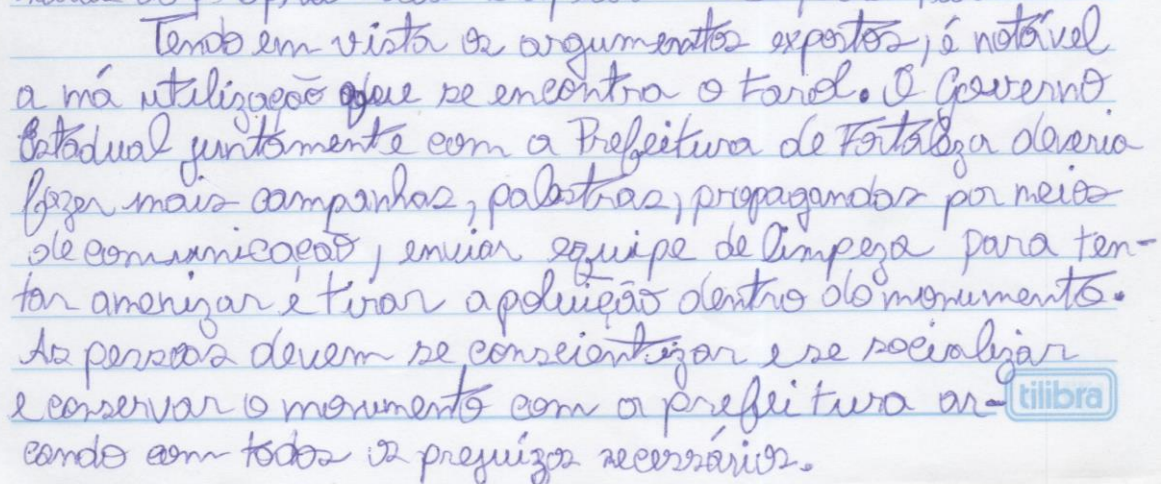 Tendo em vista os argumentos expostos, é notável
a má utilização que se encontra o farol. O Governo
Estadual juntamente com a Prefeitura de Fortaleza deveria
fazer mais campanhas, palestras, propagandas por meios
de comunicação, enviar equipe de limpeza para ten-
tar amenizar e tirar a poluição dentro do monumento.
As pessoas devem se conscientizar e se socializar
e conservar o monumento com a prefeitura ar-
tilibra
cando com todos os prejuízos necessários.